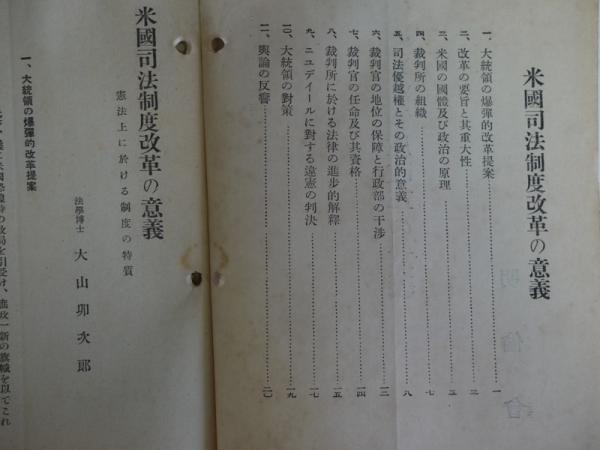 米國司法制度改革の意義
一、大統領の爆彈的改革提案……一
二、改革の要旨と其重大性……三
三、米國の國體及び政治の原理……五
四、裁判所の組織……七
五、司法優越權とその政治的意義……八
六、裁判官の地位の保障と行政部の干渉……一三
七、裁判官の任命及び其資格……一四
八、裁判所に於ける法律の進步的解釋……一五
九、ニユデイールに對する違憲の判決……一七
一〇、大統領の對策……一九
一一、輿論の反響……二〇
米國司法制度改革の意義
憲法上に於ける制度の特質
法學博士 大山卯次郎
一、大統領の爆彈的改革提案
の政局を引受け、庶政一新の旗幟を以てこれ